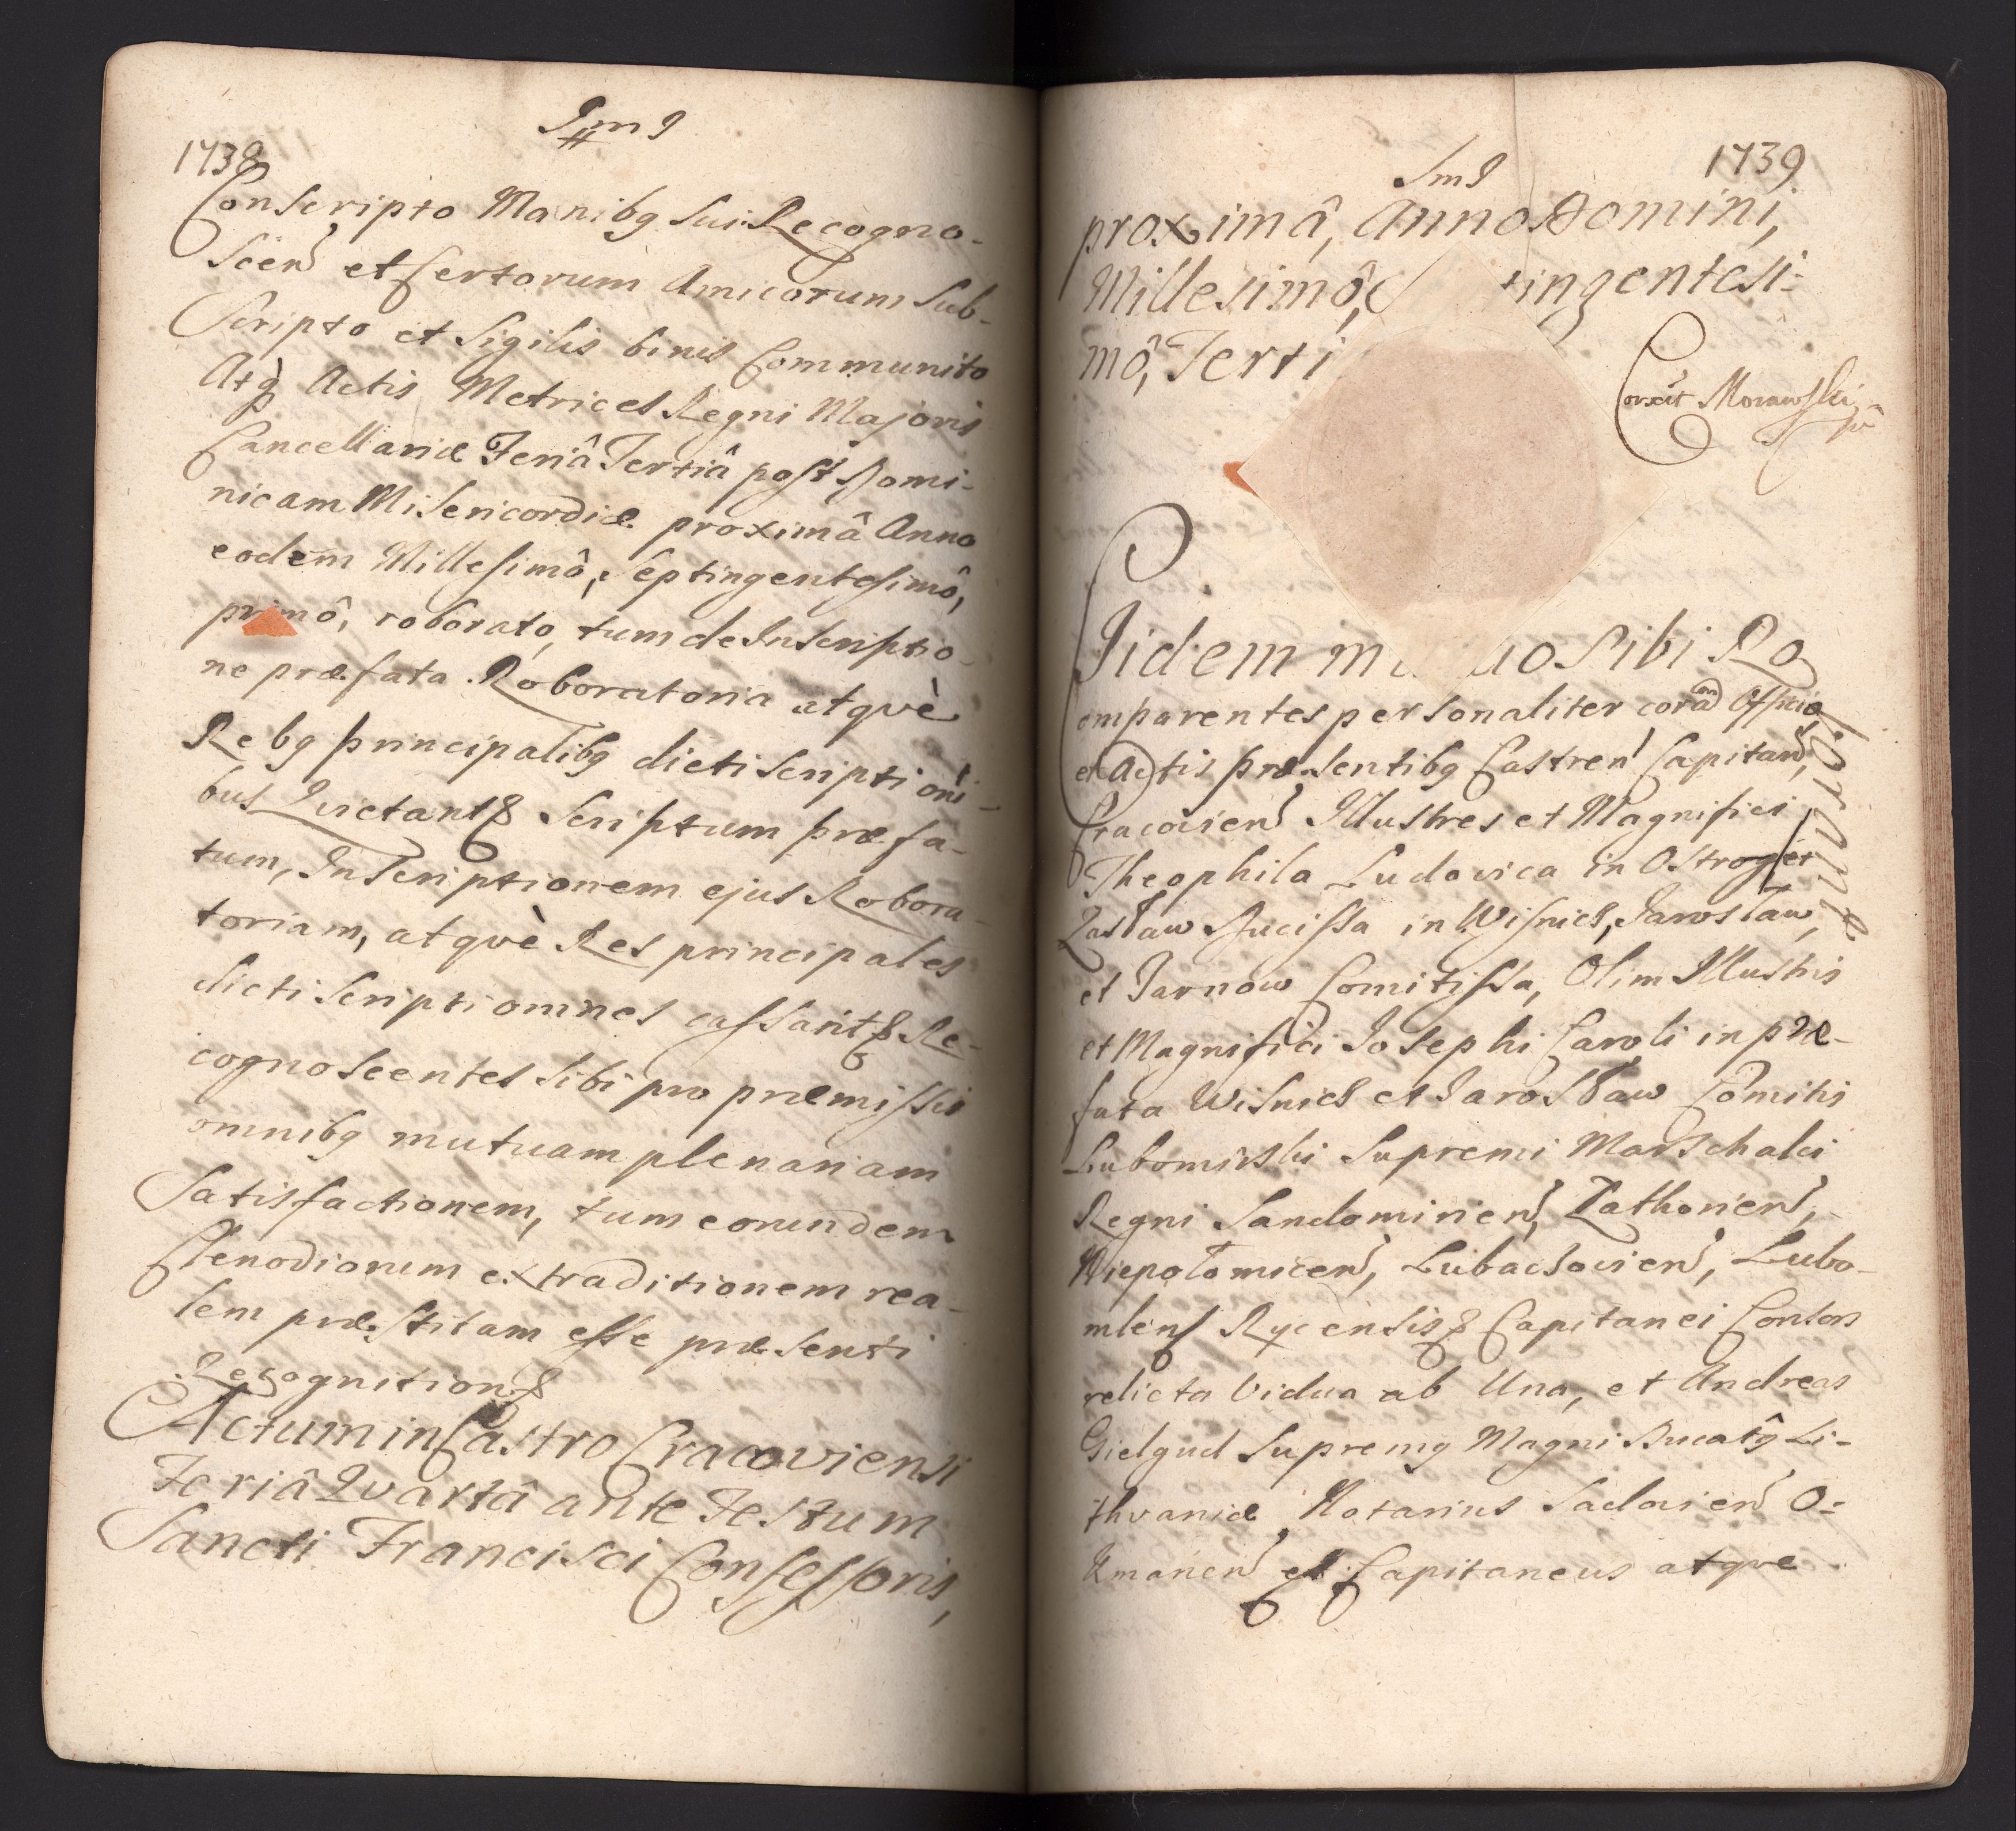 1738
Conscripto Manibq sui Recogno-
scen et Certorum Amicorum Sub-
scripto et Sigilis binis Communito
Atq Actis Metrices Regni Majoris
Cancellariæ Feriâ Tertiâ post Domi-
nicam Misericordiæ proximâ Anno
eodem Millesimô, Septingentesimô,
primô, roborato, tum de Inscriptio-
ne præfata Roboratoria atqvè
Rebq principalibq dicti scripti omni-
bus Qvietant Scriptum præfa-
tum, Inscriptionem ejus Robora-
toriam, atqvè Res principales
dicti scripti omnes cassant Re-
cognoscentes sibi pro præmissis
omnibq mutuam plenariam
Satisfactionem, tum eorundem
Clenodiorum extraditionem rea-
lem præstitam esse præsenti
Recognition
Actum in Castro Cracoviensi
Feriâ Qvartâ ante Festum
Sancti Francisci Confessoris,
1739
proximâ, Anno Domini,
Millesimô, tingentesi-
mô, Terti
Correxit Morawski
Iidem sibi Ro
borant
Comparentes personaliter coram Officio
et Actis præsentibq Castren Capitan,
Cracovien Illustres et Magnifici
Theophila Ludovica in Ostrog et
Zasław Ducissa in Wisnicz, Jarosław,
et Tarnow Comitissa, Olim Illustris
et Magnifici Josephi Caroli in præ-
fata Wisnicz et Jarosław Comitis
Lubomirski Supremi Marschalci
Regni Sandomirien, Zathorien,
Niepołomicen, Lubaczovien, Lubo-
mlens Rycensis Capitanei Consors
relicta Vidua ab Una, et Andreas
Gielgud Supremq Magni Ducatq Li-
thvaniæ Notarius Sadovien O-
Kmanien Capitaneus atqve